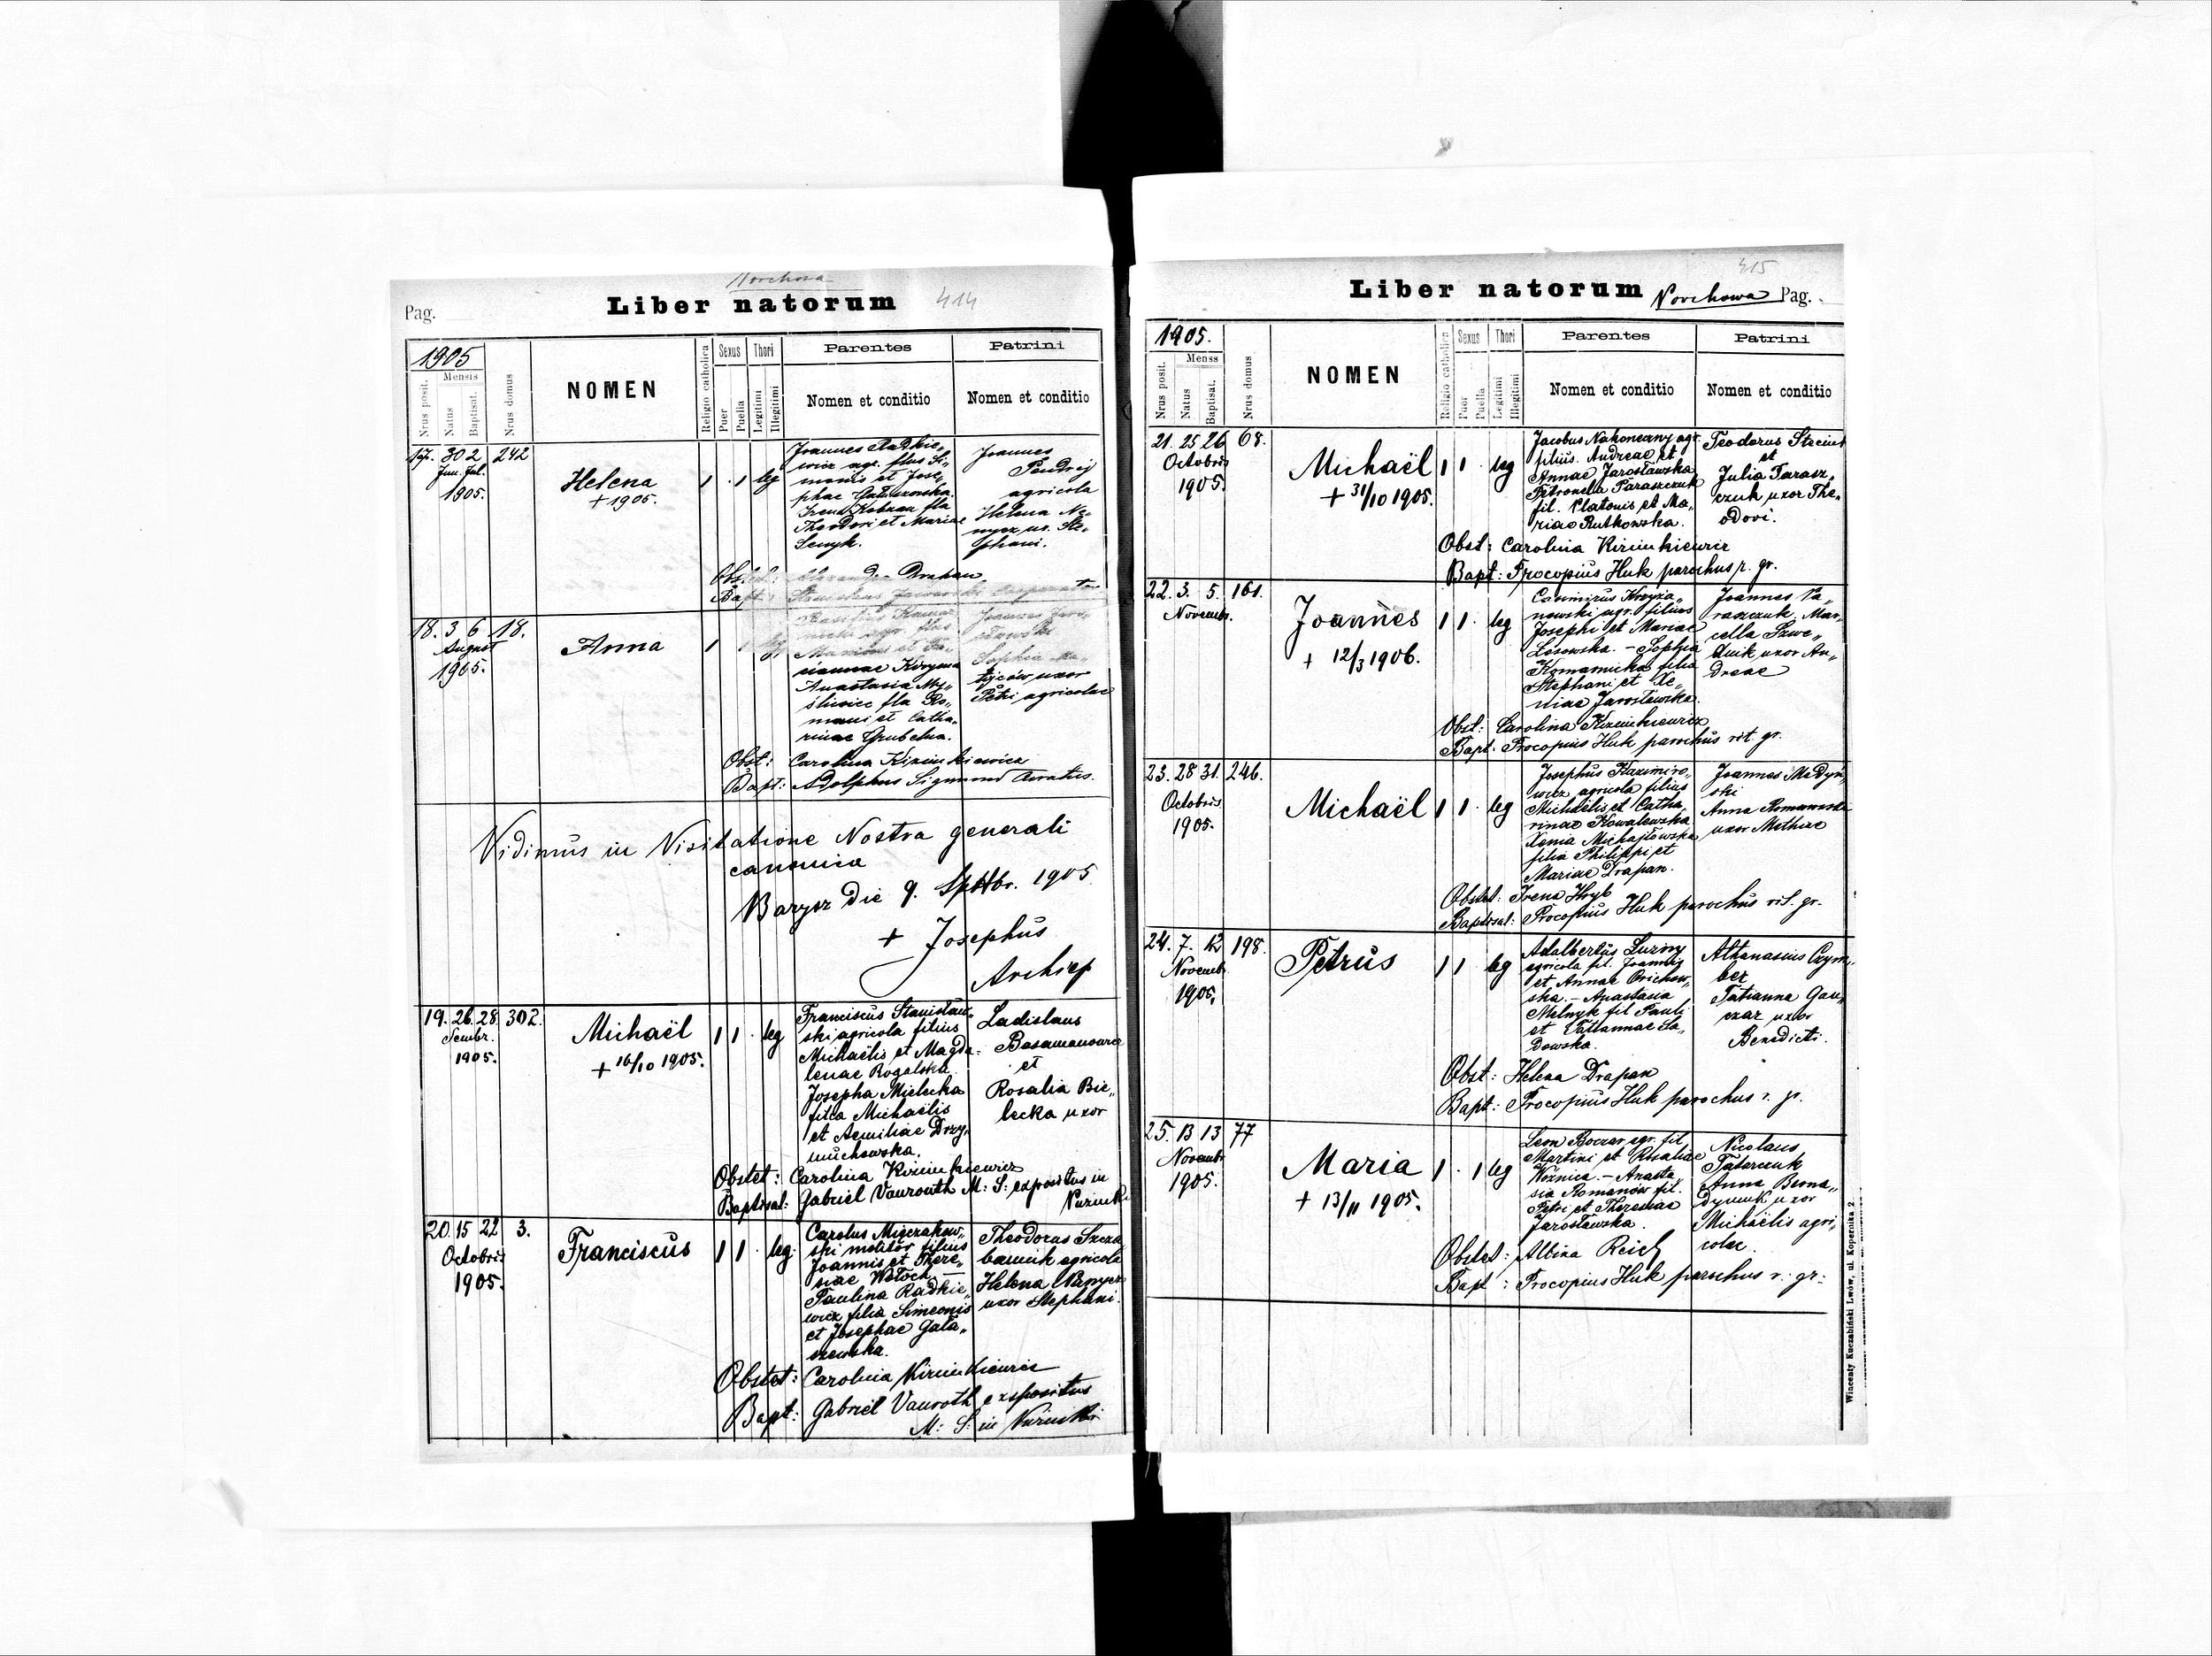 Pag.
Liber natorum 414
1905
Nrus posit.
Mensis
Natus
Baptisat.
Nrus domus
NOMEN
Religio catholica
Sexus
Puer
Puella
Thori
Legitimi
Illegitimi
Parentes
Nomen et conditio
Patrini
Nomen et conditio
17. 30 2 242
Jun. Jul.
1905.
Helena
+ 1905.
1 . 1 leg
Joannes Radkie„
wicz agr. flus Si„
monis et Jose„
phae
Theodori et Mariae
Senyk.
Joannes
agricola
Helena
ux. Ste„
phani.
Drapan
18. 3 6 18.
August
1905.
Anna
1
Anastasia My„
śliwiec fla Ro„
mani et Catha„
rinae
Sophia
uxor
Petri agricolae
Obst: Carolina Kiziukiewicz
Bapt: Adolphus Sigmund Curatus.
Vidimus in Visitatione Nostra generali
canonica
Barysz die 9. Septbr. 1905
+ Josephus
Archiep
19. 26. 28 302.
1905.
Michaël
+ 16/10 1905.
1 1 . leg
Franciscus Stanisław„
ski agricola filius
Michaëlis et Magda„
lenae Rogalska
Josepha Mielecka
filia Michaëlis
et Aemiliae Drzy„
muchowska.
Ladislaus
et
Rosalia Bie„
lecka uxor
Obstet: Carolina Kiziukiewicz
Baptisat: Gabriel Vaurouth M: S: expositus in
20. 15 22 3.
Octobris
1905.
Franciscus
1 1 . leg.
Carolus Migczakow„
ski molitor filius
Joannis et There„
siae Wołoch —
Paulina Radkie„
wicz filia Simeonis
et Josephae Gała„
szewska.
Theodorus Szcze
baniuk agricola
Helena
uxor Stephani.
Obstet: Carolina Kiziukiewicz
Bapt: Gabriel Vauroth expositus
M: S: in
415
Liber natorum Norchowa Pag.
1905.
Nrus posit.
Menss
Natus
Baptisat.
Nrus domus
NOMEN
Religio catholica
Sexus
Puer
Puella
Thori
Legitimi
Illegitimi
Parentes
Nomen et conditio
Patrini
Nomen et conditio
21. 25 26 68.
Octobris
1905.
Michaël
+ 31/10 1905.
1 1 . leg
Jacobus Nakoneczny agr.
filius. Andreae et
Annae Jarosławska
Petronela Paraszczuk
fil. Platonis et Ma„
riae Rutkowska.
Teodorus
et
Julia Parasz„
czuk uxor The„
odori.
Obst: Carolina Kiziukiewicz
Bapt: Procopius Huk parochus r. gr.
22. 3. 5. 161.
Novembr.
Joannes
+ 12/3 1906.
1 1 . leg
Casimirus Krzyża„
nowski agr. filius
Josephi et Mariae
Łosowska. – Sophia
Komarnicka filia
Stephani et Xe„
niae Jarosławska.
Joannes Pa„
raszczuk. Mar„
cella Szwe„
duik uxor An„
dreae
Obst: Carolina Kiziukiewicz
Bapt. Procopius Huk parochus rit. gr.
23. 28 31. 246.
Octobris
1905.
Michaël
1 1 . leg
Josephus Kazimiro„
wicz agricola filius
Michaëlis et Catha„
rinae Kowalewska
Xenia Michajłowska
filia Philippi et
Mariae Drapan.
Joannes Medyń„
ski
Anna Romanowska
uxor Mathiae
Obstet: Irena Hryb
Baptisat: Procopius Huk parochus rit. gr.
24. 7. 12 198.
Novembr.
1905.
Petrus
1 1 . leg
Adalbertus Luzny
agricola fil. Joannis
et Annae Orichow„
ska. – Anastasia
Melnyk fil Pauli
et Tatiannae Sa„
dowska.
Athanasius Czym„
ber
Tatianna Gan„
czar uxor
Benedicti.
Obst: Helena Drapan
Bapt: Procopius Huk parochus r. gr.
25. 13 13 77
Novembr
1905.
Maria
+ 13/11 1905.
1 . 1 leg
Leon Boczar agr. fil
Martini et Rosaliae
Woźnica. – Anasta„
sia Romanów fil.
Petri et Theresiae
Jarosławska.
Nicolaus
Tatarczuk
Anna Berna„
uxor
Michaëlis agri„
colae.
Obstet: Albina Reich
Bapt: Procopius Huk parochus r. gr.
Wincenty Kuczabiński Lwów, ul. Kopernika 2